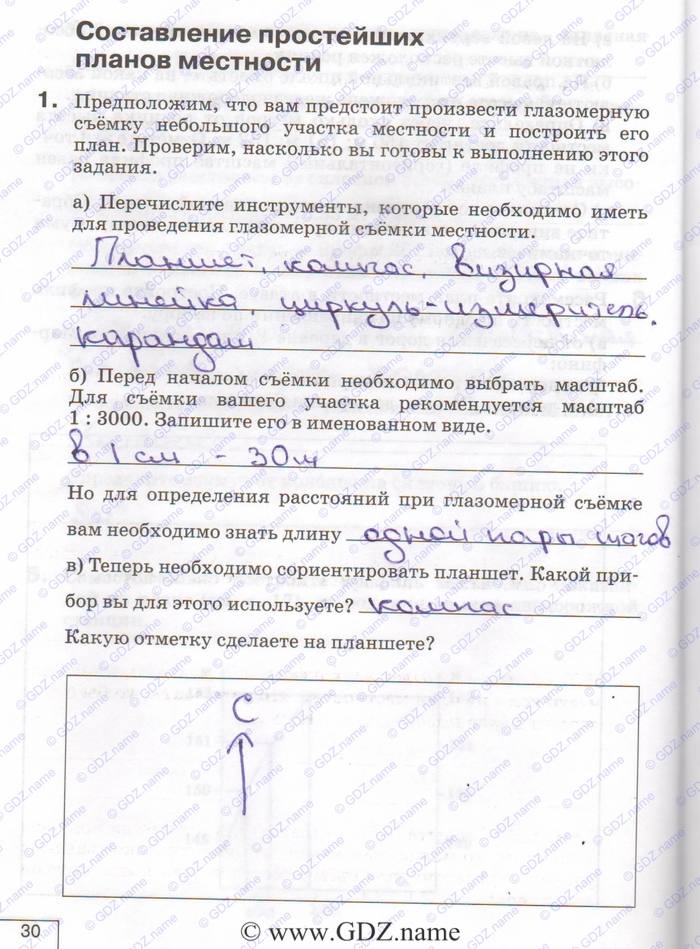 Составление простейших
планов местности
1. Предположим, что вам предстоит произвести глазомерную
съёмку небольшого участка местности и построить его
план. Проверим, насколько вы готовы к выполнению этого
задания.
а) Перечислите инструменты, которые необходимо иметь
для проведения глазомерной съёмки местности.
Планшет, компас, визирная
линейка, циркуль-измеритель.
карандаш
б) Перед началом съёмки необходимо выбрать масштаб.
Для съёмки вашего участка рекомендуется масштаб
1 : 3000. Запишите его в именованном виде.
в 1 см - 30 м
Но для определения расстояний при глазомерной съёмке
вам необходимо знать длину одной пары шагов
в) Теперь необходимо сориентировать планшет. Какой при-
бор вы для этого используете? компас
Какую отметку сделаете на планшете?
С
30
© www.GDZ.name